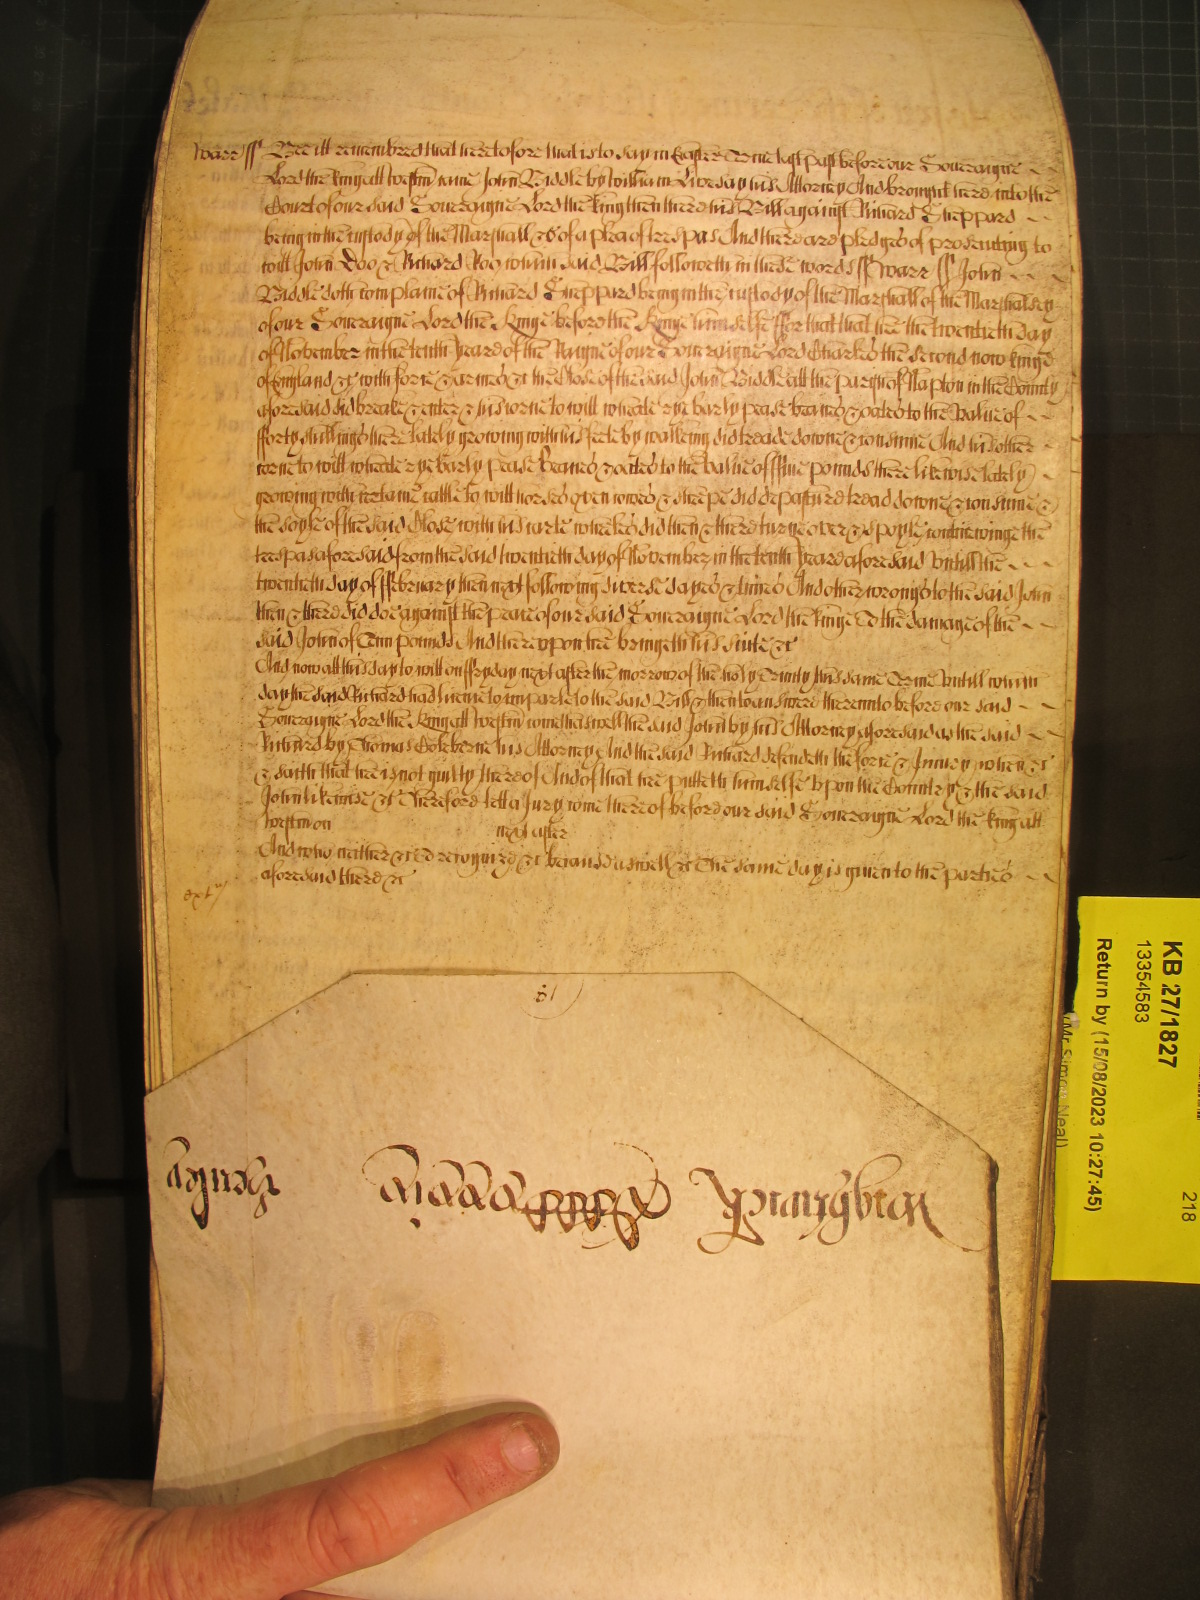 Warr ss Bee itt remembred that heretofore that is to say in Easter Terme last past before our Soveraigne
Lord the king att Westm came John Biddle by William Livesay his Attorney And brought here into the
Court of our said Soveraigne Lord the king then there his Bill against Richard Sheppard
being in the custody of the Marshall &c of a plea of trespas And there are pledges of prosecuting to
witt John Doo & Richard Roo which said Bill followeth in these words ss Warr ss John
Biddle doth complaine of Richard Sheppard being in the custody of the Marshall of the Marshalsey
of our Soveraigne Lord the Kinge before the Kinge himselfe ffor that that hee the twentieth day
of November in the tenth yeare of the Raigne of our Soveraigne Lord Charles the second now kinge
of England &c with force & armes &c the Close of the said John Biddle att the parish of Napton in the County
aforesaid did breake & enter & his corne to witt wheate rye barly pease beanes & oates to the value of
fforty shillings there lately growing with his feete by walkeing did treade downe & consume And his other
corne to witt wheate rye barly pease beanes & oates to the value of ffive pounds there likewise lately
growing with certaine cattle to witt horses oxen cowes & sheepe did depasture tread downe & consume &
the soyle of the said Close with his carte wheeles did then & there turne over & spoyle continewinge the
trespas aforesaid from the said twentieth day of November in the tenth yeare aforesaid Untill the
twentieth day of ffebruary then next following diverse dayes & times And other wrongs to the said John
then & there did doe against the peace of our said Soveraigne Lord the kinge To the damage of the
said John of Tenn pounds And thereupon hee bringeth his suite &c
And now att this day to witt on ffryday next after the morrow of the holy Trinity this same Terme Untill which
day the said Richard had licence to imparle to the said Bill & then to answere thereunto before our said
Soveraigne Lord the king att Westm come th aswell the said John by his Attorney aforesaid as the said
Richard by Thomas Coleborne his Attorney And the said Richard defendeth the force & Iniury when &c
& saith that hee is not guilty thereof And of that hee putteth himselfe upon the Country & the said
John likewise &c Therefore lett a Jury come thereof before our said Soveraigne Lord the king att
Westm on next after
And who neither &c To recognize &c because aswell &c The same day is given to the parties
aforesaid there &c
KB 27/1827
13354583
Return by (15/08/2023 10:27:45)
(Mr Simon Neal)
218